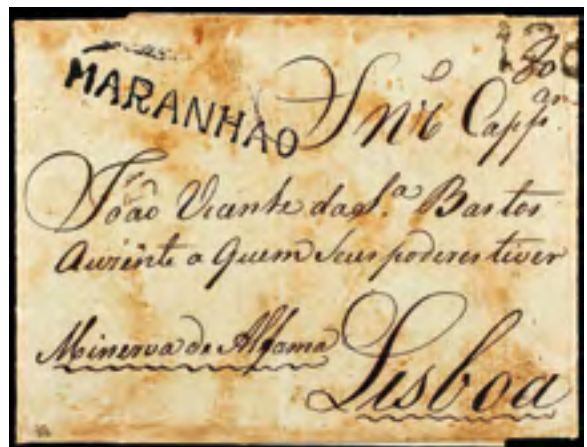 MARANHAO
Snr Capp.am
João Vicente da S.a Bastos
Auzente a Quem Seus poderes tiver
Minerva de Alfama
Lisboa